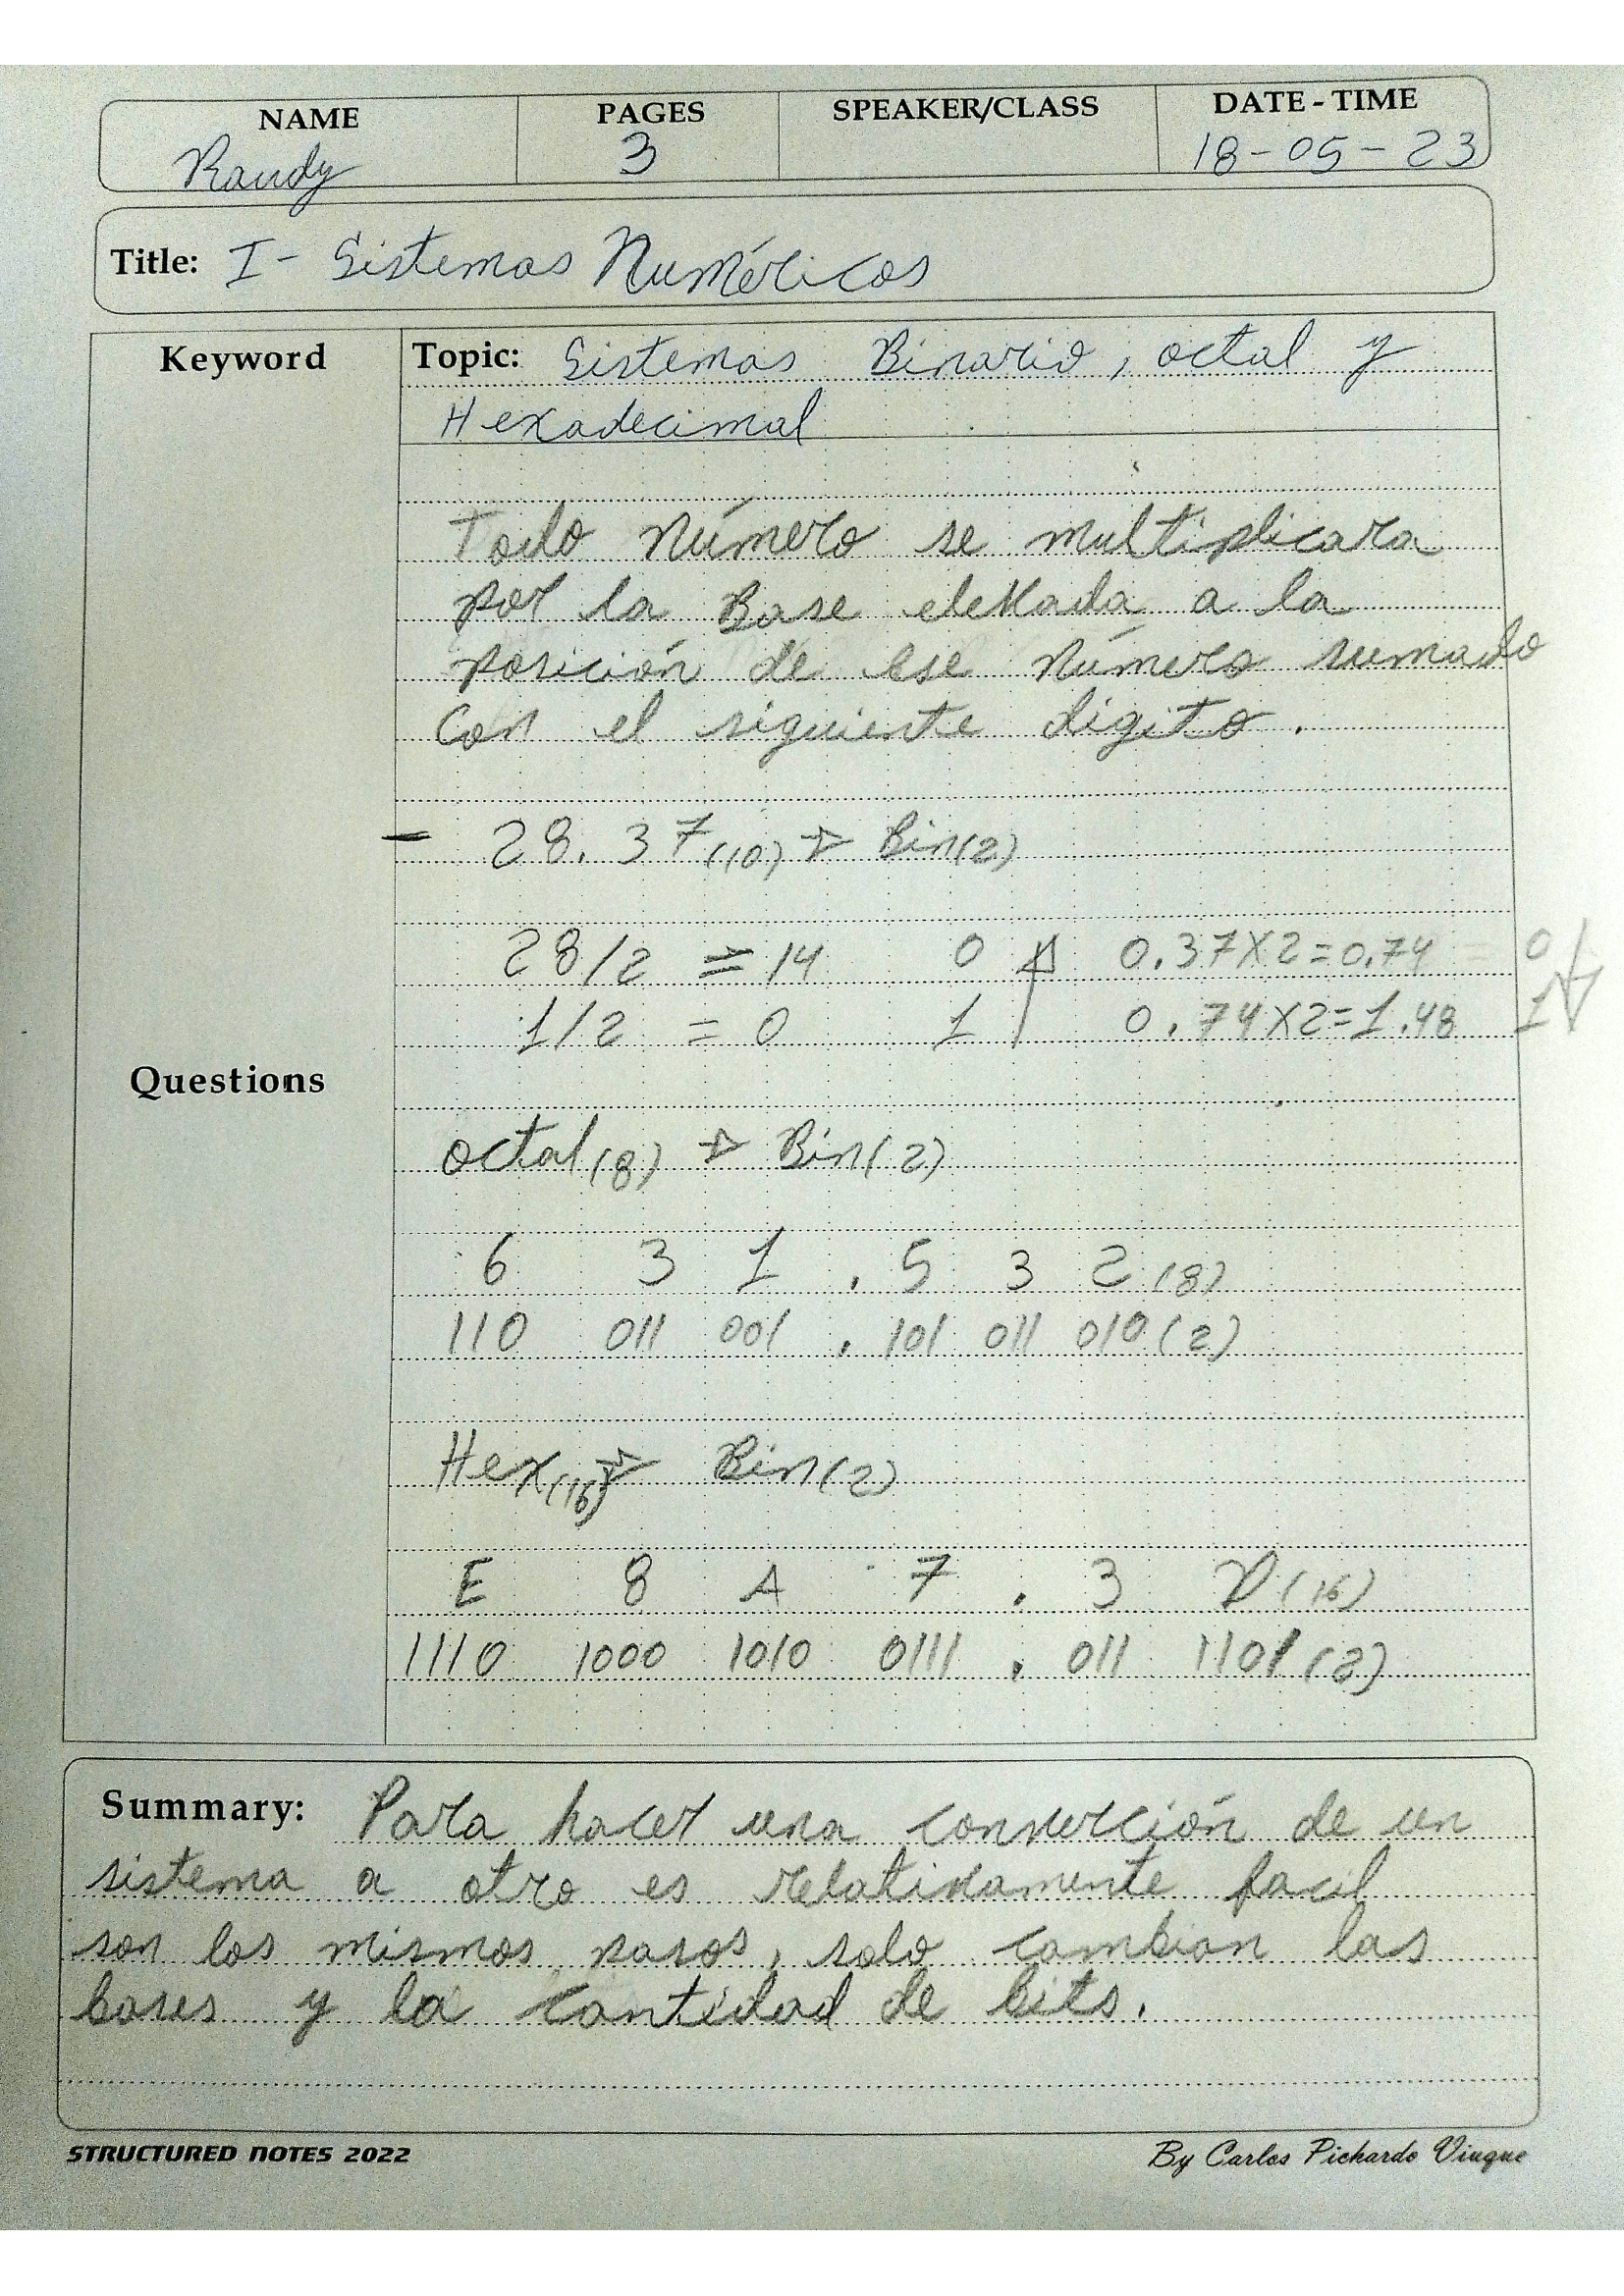 NAME PAGES SPEAKER/CLASS DATE - TIME
Randy 3 18-05-23
Title: I- Sistemas Numéricos
Keyword Topic: Sistemas Binario, octal y
Hexadecimal
Todo número se multiplicara
por la Base elevada a la
posición de ese número sumado
Con el siguiente digito.
- 28.37(10) → Bin(2)
28/2 = 14 0 ↑ 0.37X2=0.74 = 0 ↓
1/2 = 0 1 0.74X2=1.48 1
Questions
octal(8) → Bin(2)
6 3 1 . 5 3 2 (8)
110 011 001 . 101 011 010 (2)
Hex(16) → Bin(2)
E 8 A 7 . 3 D (16)
1110 1000 1010 0111 . 011 1101 (2)
Summary: Para hacer una converción de un
sistema a otro es relativamente facil
son los mismos pasos, solo cambian las
bases y la cantidad de bits.
STRUCTURED NOTES 2022 By Carlos Pichardo Viuque